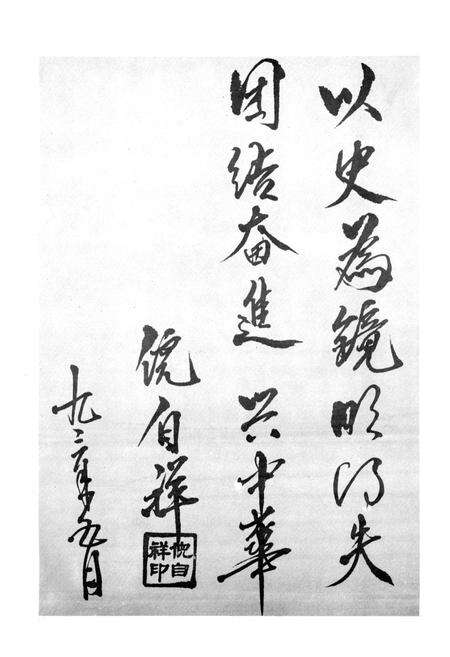 以史為鏡明得失
团结奋進 兴中華
倪自祥
九 年九月
倪自
祥印